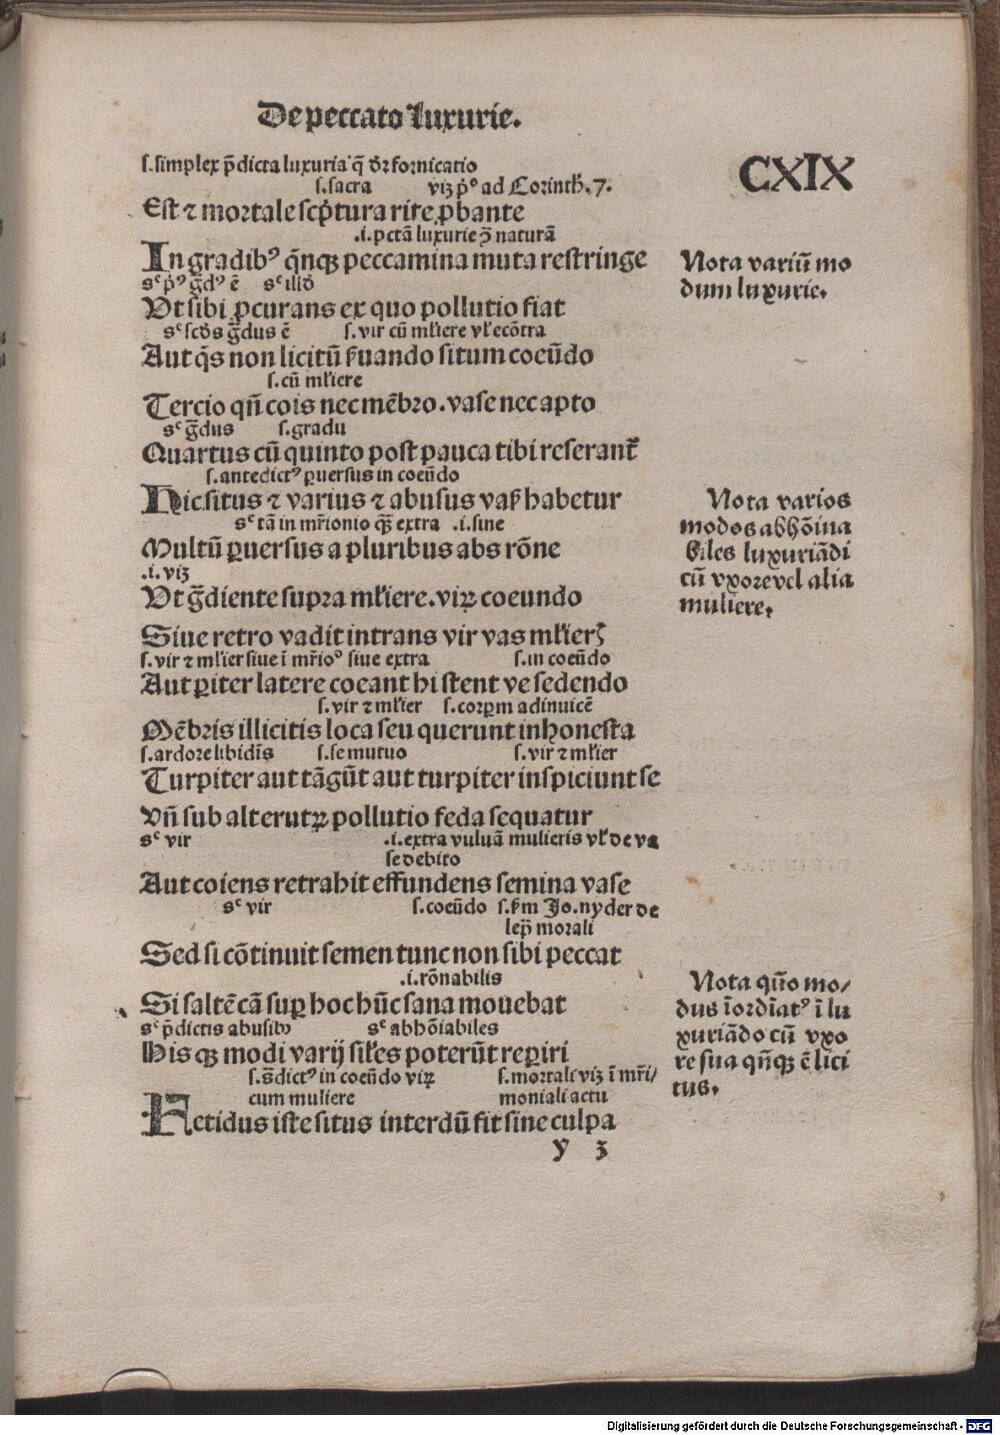 De peccato luxurie.
CXIX
s.simplex p̄dicta luxuria q̄ dr̄ fornicatio
s.sacra viꝫ pͦ ad Corinth̄.7.
Est ⁊ mortale scp̄tura rite ꝓbante
.i.pctā luxurie ꝯ̄ naturā
In gradibꝰ q̄nqꝫ peccamina muta restringe
sᶜ pͥꝰ ḡdꝰ ē sᶜ illd̄
Vt sibi ꝓcurans ex quo pollutio fiat
sᶜ scd̄s ḡdus ē s.vir cū młiere vł ecōtra
Aut q̄s non licitū ẜuando situm coeūdo
s.cū młiere
Tercio qn̄ cois nec mēbro.vase nec apto
sᶜ ḡdus s.gradu
Quartus cū quinto post pauca tibi reserant᷑
s.antedictꝰ ꝑuersus in coeūdo
Hic situs ⁊ varius ⁊ abusus vaẜ habetur
sᶜ tā in mr̄ionio qꝫ̄ extra .i.sine
Multū ꝑuersus a pluribus abs rōne
.i. viꝫ
Vt ḡdiente supra młiere.viꝝ coeundo
Siue retro vadit intrans vir vas młierꝭ
s.vir ⁊ młier siue ī mr̄ioꝰ siue extra s.in coeūdo
Aut ꝑiter latere coeant hi stent ve sedendo
s.vir ⁊ młier s.corꝑm adinuicē
Mēbris illicitis loca seu querunt inhonesta
s.ardore libidīs s.se mutuo s.vir ⁊ młier
Turpiter aut tāgūt aut turpiter inspiciunt se
Vn̄ sub alterutꝝ pollutio feda sequatur
sᶜ vir .i.extra vuluā mulieris vł de va
se debito
Aut coiens retrahit effundens semina vase
sᶜ vir s.coeūdo s.ẜm Jo.nyder de
lep̄ morali
Sed si cōtinuit semen tunc non sibi peccat
.i.rōnabilis
Si saltē cā suꝑ hoc hūc sana mouebat
sᶜ p̄dictis abusibꝰ sᶜ abhōiabiles
His qꝫ modi varij siłes poterūt reꝑiri
s.s̄dictꝰ in coeūdo viꝝ s.mortali viꝫ ī mr̄i/
cum muliere moniali actu
Fetidus iste situs interdū fit sine culpa
y 3
Nota variū mo
dum luxurie.
Nota varios
modos abhōina
biles luxuriādi
cū vxore vel alia
muliere.
Nota quō mo/
dus īordīatꝰ ī lu
xuriādo cū vxo
re sua qn̄qꝫ ē lici
tus.
Digitalisierung gefördert durch die Deutsche Forschungsgemeinschaft - DFG